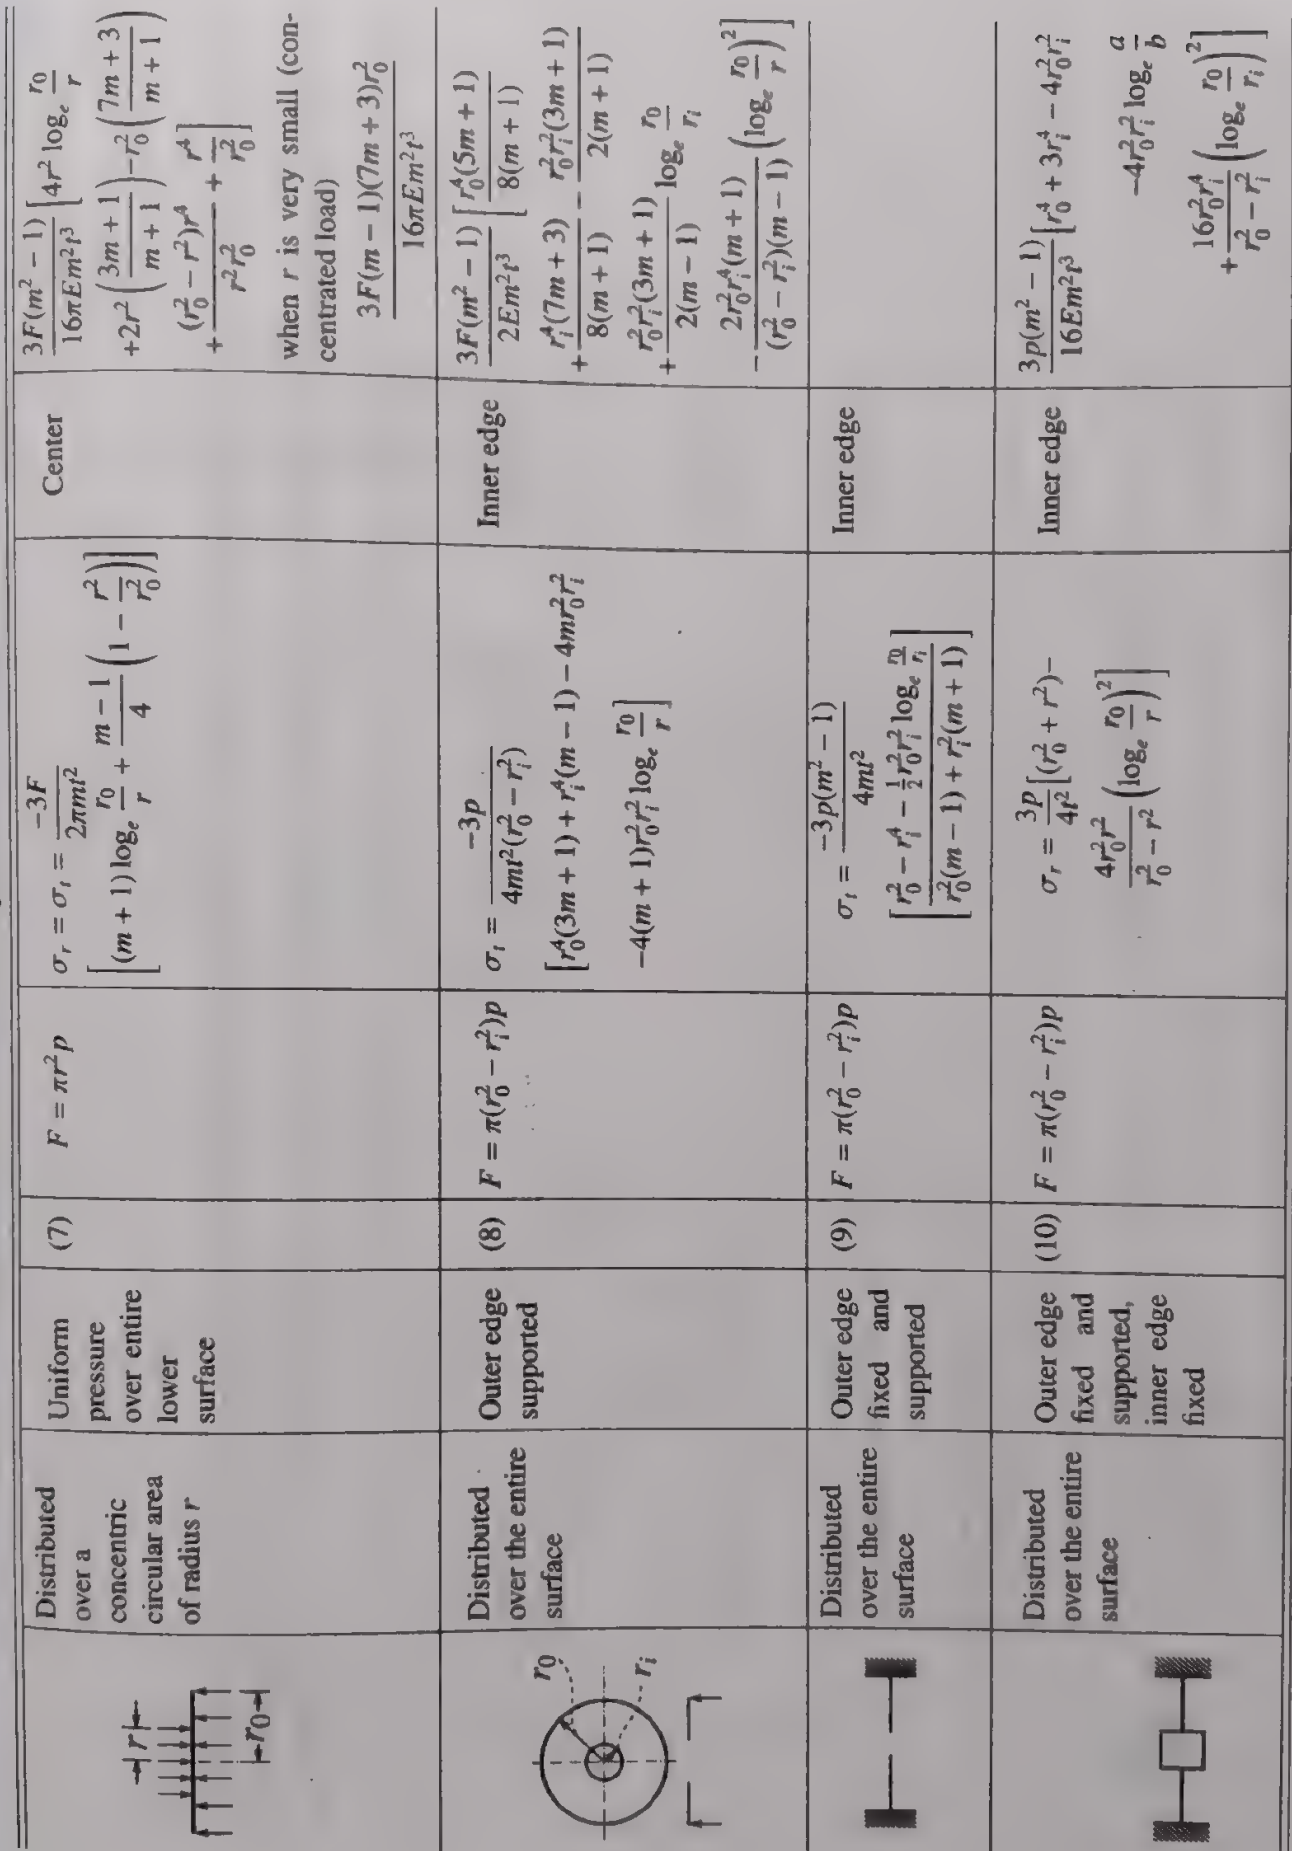 r
r₀
Distributed
over a
concentric
circular area
of radius r
Uniform
pressure
over entire
lower
surface
(7)
F = πr²p
σᵣ = σₜ = −3F / 2πmt²
[(m + 1) logₑ r₀/r + (m − 1)/4 (1 − r²/r₀²)]
Center
3F(m² − 1) / 16πEm²t³ [4r² logₑ r₀/r
+2r² ((3m + 1)/(m + 1)) − r₀² ((7m + 3)/(m + 1))
+ (r₀² − r²)r⁴ / r²r₀² + r⁴/r₀²]
when r is very small (con-
centrated load)
3F(m − 1)(7m + 3)r₀² / 16πEm²t³
r₀
rᵢ
Distributed
over the entire
surface
Outer edge
supported
(8)
F = π(r₀² − rᵢ²)p
σₜ = −3p / 4mt²(r₀² − rᵢ²)
[r₀⁴(3m + 1) + rᵢ⁴(m − 1) − 4mr₀²rᵢ²
−4(m + 1)r₀²rᵢ² logₑ r₀/r]
Inner edge
3F(m² − 1) / 2Em²t³ [r₀⁴(5m + 1) / 8(m + 1)
+ rᵢ⁴(7m + 3) / 8(m + 1) − r₀²rᵢ²(3m + 1) / 2(m + 1)
+ r₀²rᵢ²(3m + 1) / 2(m − 1) logₑ r₀/rᵢ
− 2r₀²rᵢ⁴(m + 1) / (r₀² − rᵢ²)(m − 1) (logₑ r₀/r)²]
Distributed
over the entire
surface
Outer edge
fixed and
supported
(9)
F = π(r₀² − rᵢ²)p
σₜ = −3p(m² − 1) / 4mt²
[r₀² − rᵢ⁴ − ½r₀²rᵢ² logₑ r₀/rᵢ / r₀²(m − 1) + rᵢ²(m + 1)]
Inner edge
Distributed
over the entire
surface
Outer edge
fixed and
supported,
inner edge
fixed
(10)
F = π(r₀² − rᵢ²)p
σᵣ = 3p/4t² [(r₀² + r²)−
4r₀²r² / r₀² − r² (logₑ r₀/r)²]
Inner edge
3p(m² − 1) / 16Em²t³ [r₀⁴ + 3rᵢ⁴ − 4r₀²rᵢ²
−4r₀²rᵢ² logₑ a/b
+ 16r₀²rᵢ⁴ / r₀² − rᵢ² (logₑ r₀/rᵢ)²]